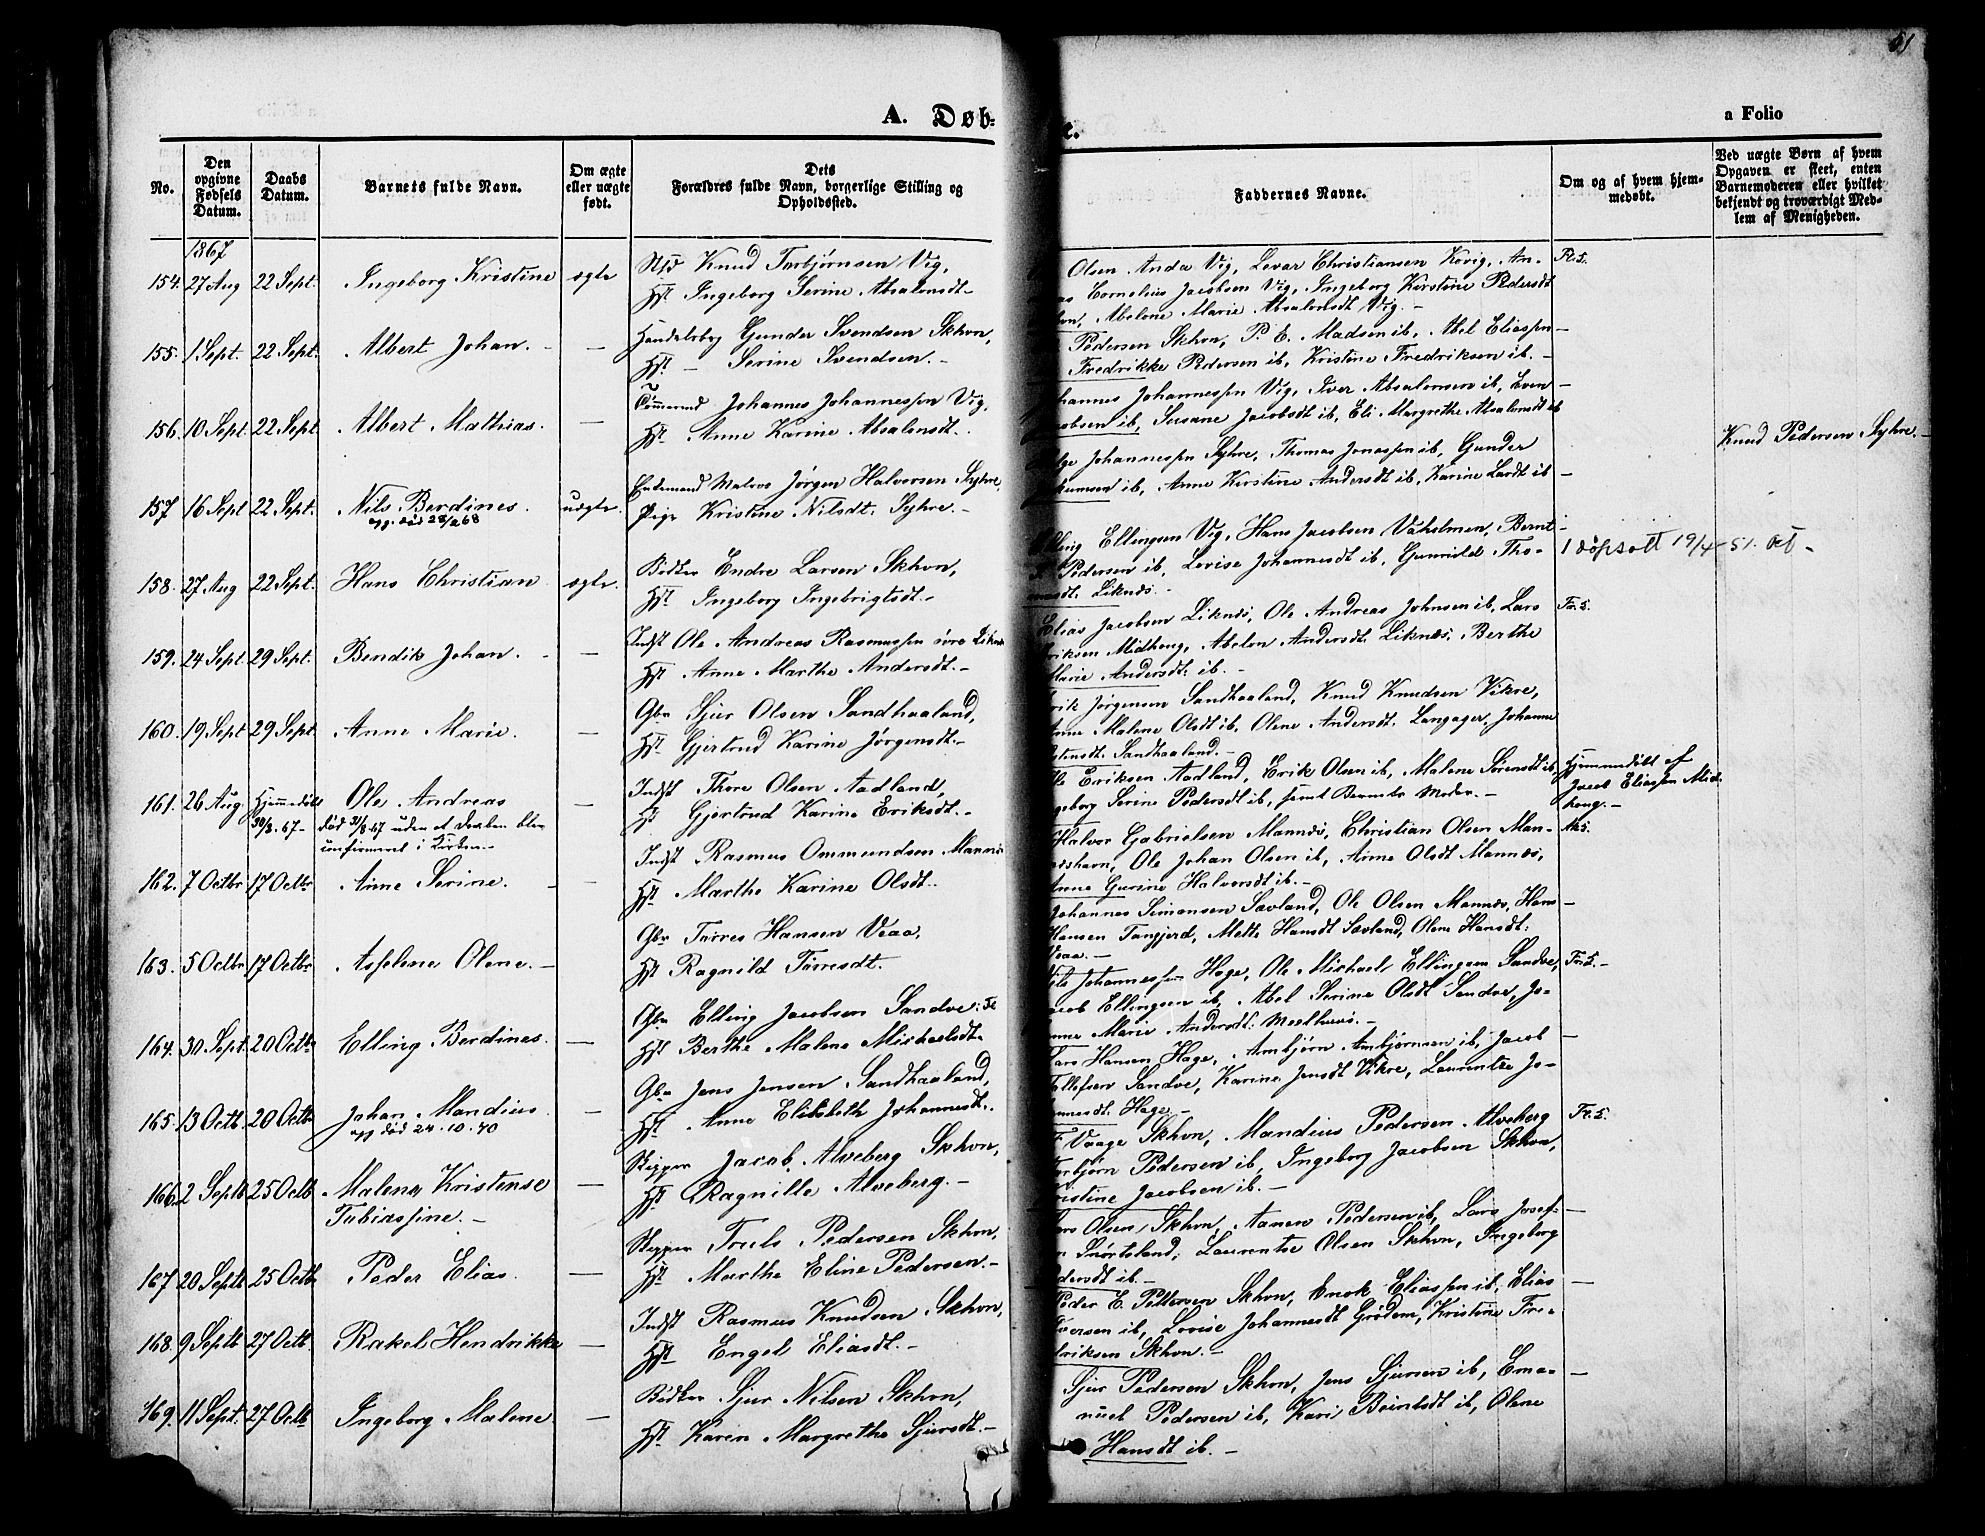 51
A. Døb-
e.
a Folio
No.
Den opgivne Fødsels Datum.
Daabs Datum.
Barnets fulde Navn.
Om ægte eller uægte født.
Dets Forældres fulde Navn, borgerlige Stilling og Opholdssted.
Faddernes Navne.
Om og af hvem hjemmedøbt.
Ved uægte Børn af hvem Opgaven er skeet, enten Barnemoderen eller hvilket bekjendt og troværdigt Medlem af Menigheden.
1867
154. 27 Aug 22 Sept. Ingeborg Kristine ægte
Knud Torbjørnsen Vig,
Hst Ingeborg Serine Absalonsdt.-
Olsen Anda Vig, Levar Christiansen Kovig, An-
Cornelius Jacobsen Vig, Ingeborg Kirstine Pedersdt
Abelone Marie Absalonsdt Vig.-
155. 1 Sept. 22 Sept. Albert Johan. - -
Handelsbg Gunder Svendsen Skhvn,
Hst. - Serine Svendsen.-
Pedersen Skhvn, P. E. Madsen ib, Abel Eliassen
Fredrikke Pedersen ib, Kristine Fredriksen ib.-
156. 10 Sept. 22 Sept Albert Mathias. -
Tømmermd Johannes Johannessen Vig,
Hst. Anne Karine Absalonsdt.
hannes Johannessen Vig, Iver Absalonsen ib, Even
cobsen ib, Sersane Jacobsdt ib, Eli Margrethe Absalonsdt ib
157 16 Sept 22 Sept. Nils Berdines. uægte.
opg. død 28/2 68
Enkemand Matros Jørgen Halvorsen Syhre,
Pige Kristine Nilsdt. Syhre.-
Johannessen Syhre, Thomas Jonassen ib, Gunder
ib, Anne Kirstine Andersdt ib, Karine Larsdt ib -
Knud Pedersen Syhre.-
158. 27 Aug 22 Sept. Hans Christian ægte.
Bødker Endre Larsen Skhvn,
Hst. Ingeborg Ingebrigtsdt.-
Ellingsen Vig, Hans Jacobsen Vaholmen, Bernt
Pedersen ib, Lovise Johannesdt ib, Gunnild Tho-
masdt. Liknæs.-
19/4 51.
159. 24 Sept 29 Sept. Bendik Johan. - -
Indst Ole Andreas Rasmussen øvre Liknæs
Hst Anne Marthe Andersdt.-
Elias Jacobsen Liknæs, Ole Andreas Johnsen ib, Lars
riksen Midheug, Abelon Andersdt. Liknæs, Berthe
Marie Andersdt. ib.-
160. 19 Sept 29 Sept. Anne Marie. -
Gbr Sjur Olsen Sandhaaland,
Hst. Gjertrud Karine Jørgensdt.-
rik Jørgensen Sandhaaland, Knud Knudsen Vikre,
Malene Olsdt ib, Olene Andersdt. Langager, Johanne
Sandhaaland.-
161. 26 Aug Hjemmedøbt Ole Andreas -
30/8.67- død 31/8 67 uden at Daaben blev
confirmeret i Kirken.-
Indst Thore Olsen Aadland,
Hst. Gjertrud Karine Eriksdt.-
Ole Eriksen Aadland, Erik Olsen ib, Malene Sørensdt ib,
geborg Serine Pedersdt ib, samt Barnets Moder.-
Hjemmedøbt af
Jacob Eliassen Mid-
heug.-
162. 7 Octbr 17 Octbr Anne Serine. - -
Indst Rasmus Ommundsen Mannæs
Hst Marthe Karine Olsdt.
Halvor Gabrielsen Mannæs, Christian Olsen Man-
næshavn, Ole Johan Olsen ib, Anne Olsdt Mannæs,
Anne Gurine Halvorsdt ib.-
163. 5 Octbr 17 Octbr Asselene Olene.-
Gbr Tørres Hansen Veaa,
Hst Ragnild Tørresdt.
Johannes Simonsen Sævland, Ole Olsen Mannæs, Hans -
Hansen Tangjerd, Mette Hansdt Sævland, Olene Hansdt:
Veaa.-
164. 30 Sept. 20 Octbr Elling Berdines. -
Gbr Elling Jacobsen Sandve.
Hst Berthe Malene Michaelsdt.
Nils Johannessen Hage, Ole Michael Ellingsen Sandve,
Jacob Ellingsen ib, Abel Serine Olsdt Sandve, Jo-
Marie Andersdt: Meelhuus.-
165. 13 Octb. 20 Octbr Johan Mandius. -
opg død 24.10.70
Gbr Jens Jensen Sandhaaland,
Hst Anne Elisabeth Johannesdt.
Lars Hansen Hage, Ambjørn Ambjørnsen ib, Jacob -
Tollefsen Sandve, Karine Jensdt Vikre, Laurentze Jo-
hannesdt. Hage-
166. 2 Septb 25 Octb Malena Kristense -
Tobiassine.-
Skipper Jacob Alveberg Skhvn,
Hst. Ragnille Alveberg.-
Vaage Skhvn, Mandius Pedersen Alveberg
Torbjørn Pedersen ib, Ingeborg Jacobsen Skhvn,
Kristine Jacobsen ib.-
167 20 Septb 25 Octb Peder Elias. -
Skipper Truls Pedersen Skhvn,
Hst. Marthe Eline Pedersen.-
Lars Olsen Skhvn, Aanen Pedersen ib, Lars Josef- -
Snørtsland, Laurentse Olsen Skhvn, Ingeborg
Pedersdt ib.-
168. 9 Septb 27 Octb. Rakel Hendrikke -
Indst Rasmus Knudsen Skhvn,
Hst Engel Eliasdt.-
Peder E. Pettersen Skhvn, Enok Eliassen ib, Elias -
Iversen ib, Lovise Johannesdt Grødem, Kristine Fre-
driksen Skhvn.-
169. 11 Sept. 27 Octb Ingeborg Malene -
Bødker Sjur Nilsen Skhvn,
Hst. Karen Margrethe Sjursdt.-
Sjur Pedersen Skhvn, Jens Sjursen ib, Ema- -
nuel Pedersen ib, Kari Berntsdt ib, Olene
Hansdt ib.-